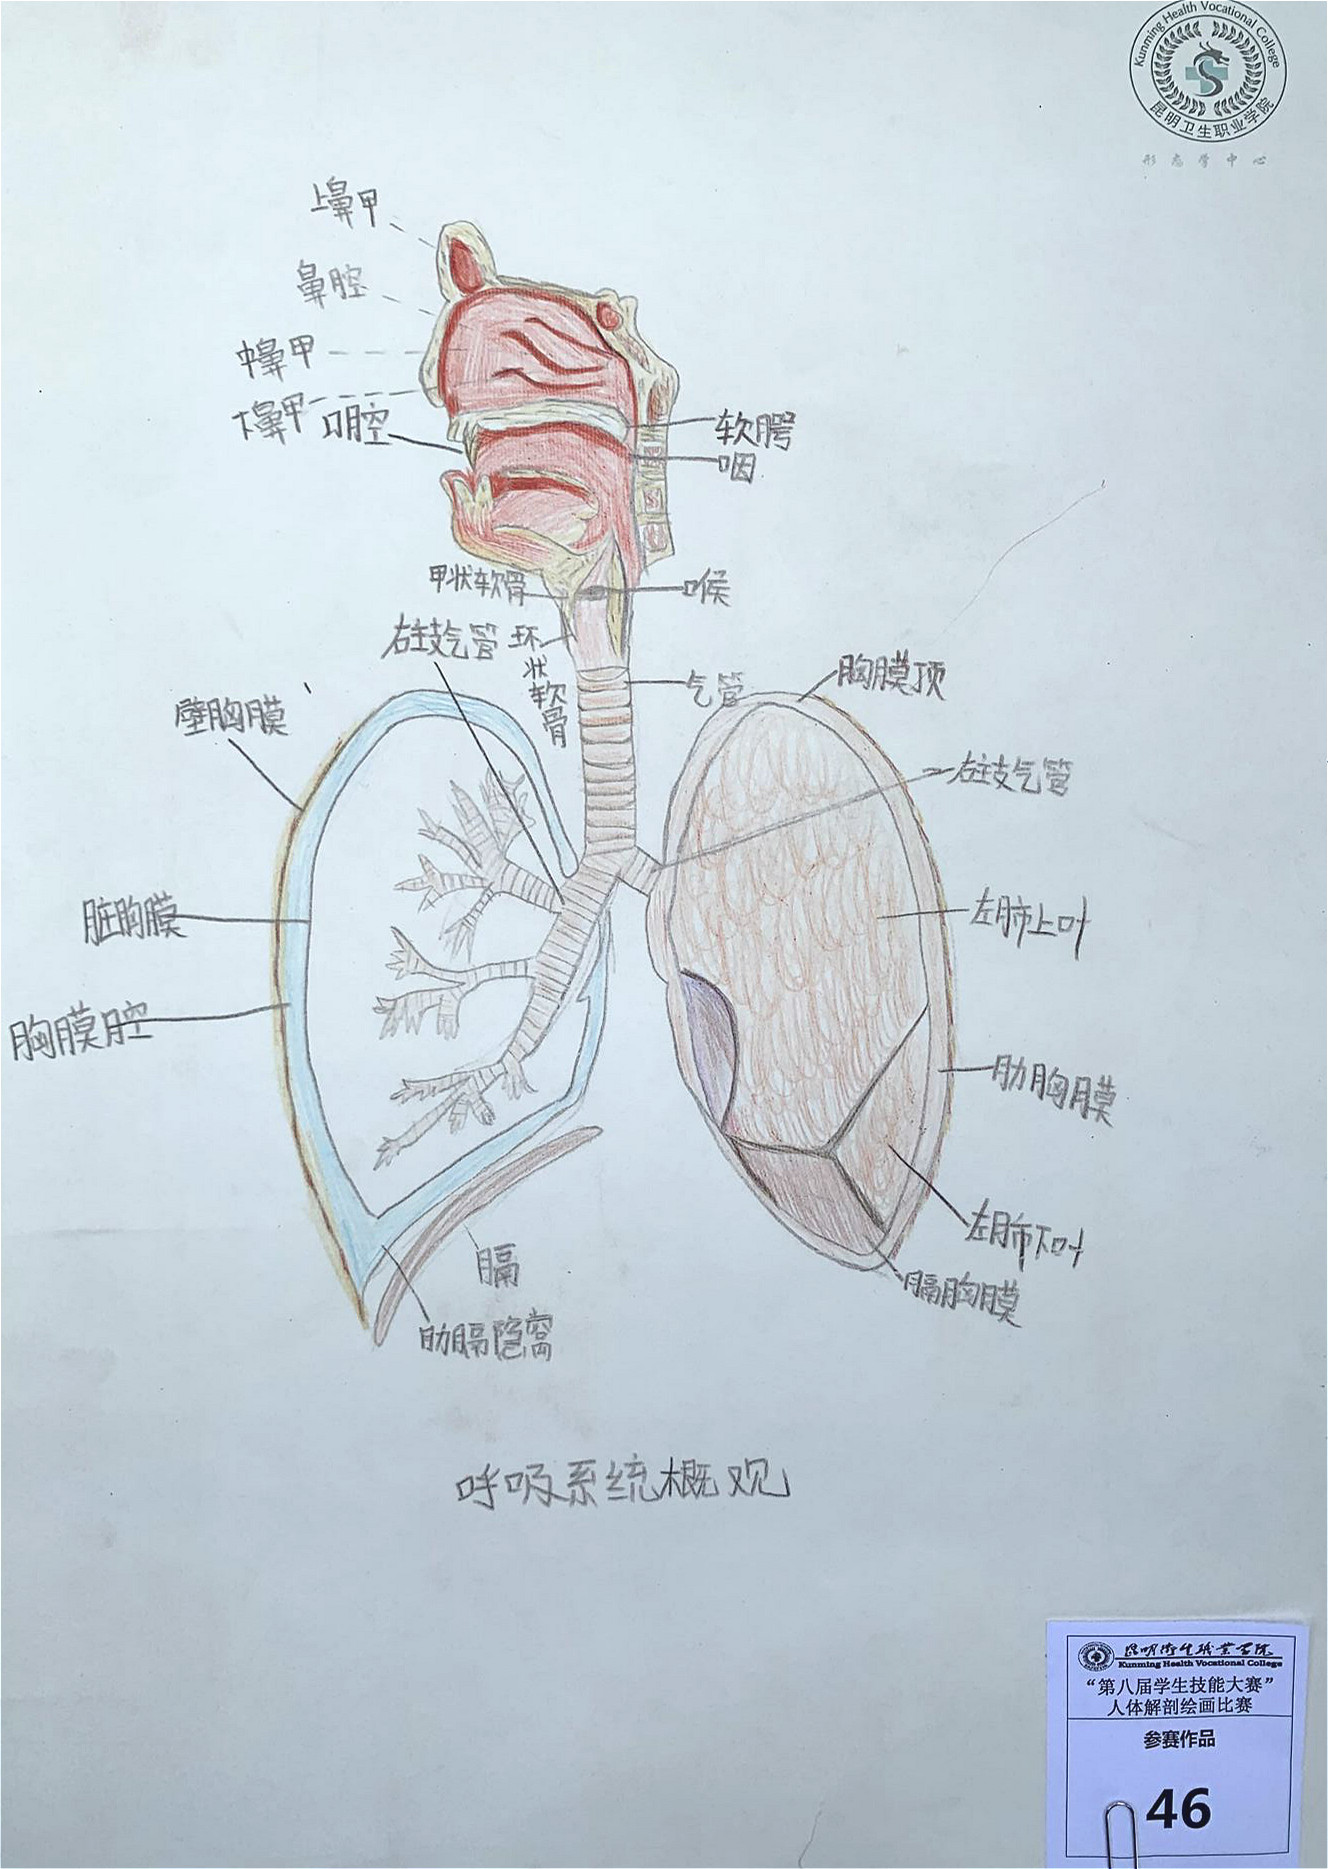 Kunming Health Vocational College
昆明卫生职业学院
形态学中心
上鼻甲
鼻腔
中鼻甲
下鼻甲
口腔
软腭
咽
甲状软骨
喉
右主支气管
环状软骨
气管
胸膜顶
壁胸膜
右主支气管
脏胸膜
左肺上叶
胸膜腔
肋胸膜
左肺下叶
膈
膈胸膜
肋膈隐窝
呼吸系统概观
昆明卫生职业学院
Kunming Health Vocational College
“第八届学生技能大赛”
人体解剖绘画比赛
参赛作品
46